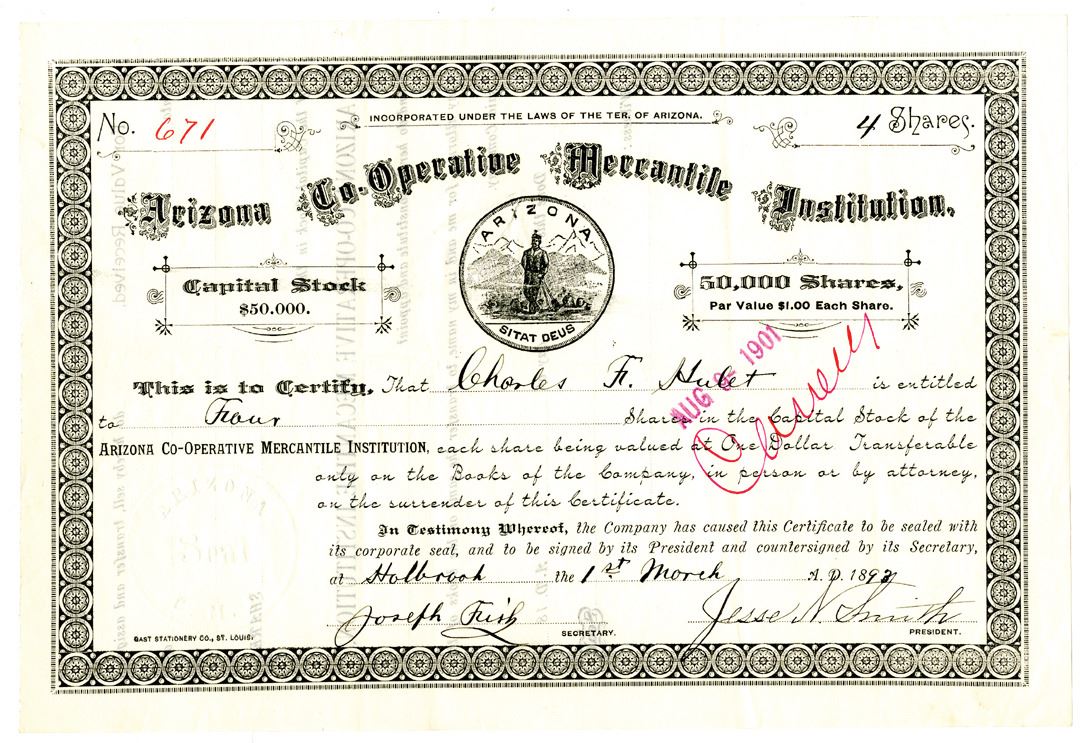 No. 671
INCORPORATED UNDER THE LAWS OF THE TER. OF ARIZONA.
4 Shares.
Arizona Co-Operative Mercantile Institution,
ARIZONA
SITAT DEUS
Capital Stock
$50.000.
50,000 Shares,
Par Value $1.00 Each Share.
AUG 1901
This is to Certify, That Charles F. Hulet is entitled
to Four Shares in the Capital Stock of the
ARIZONA CO-OPERATIVE MERCANTILE INSTITUTION, each share being valued at One Dollar Transferable
only on the Books of the Company, in person or by attorney,
on the surrender of this Certificate.
In Testimony Whereof, the Company has caused this Certificate to be sealed with
its corporate seal, and to be signed by its President and countersigned by its Secretary,
at Holbrook the 1st March A. D. 189
Joseph Fish
SECRETARY.
Jesse N. Smith
PRESIDENT.
GAST STATIONERY CO., ST. LOUIS.